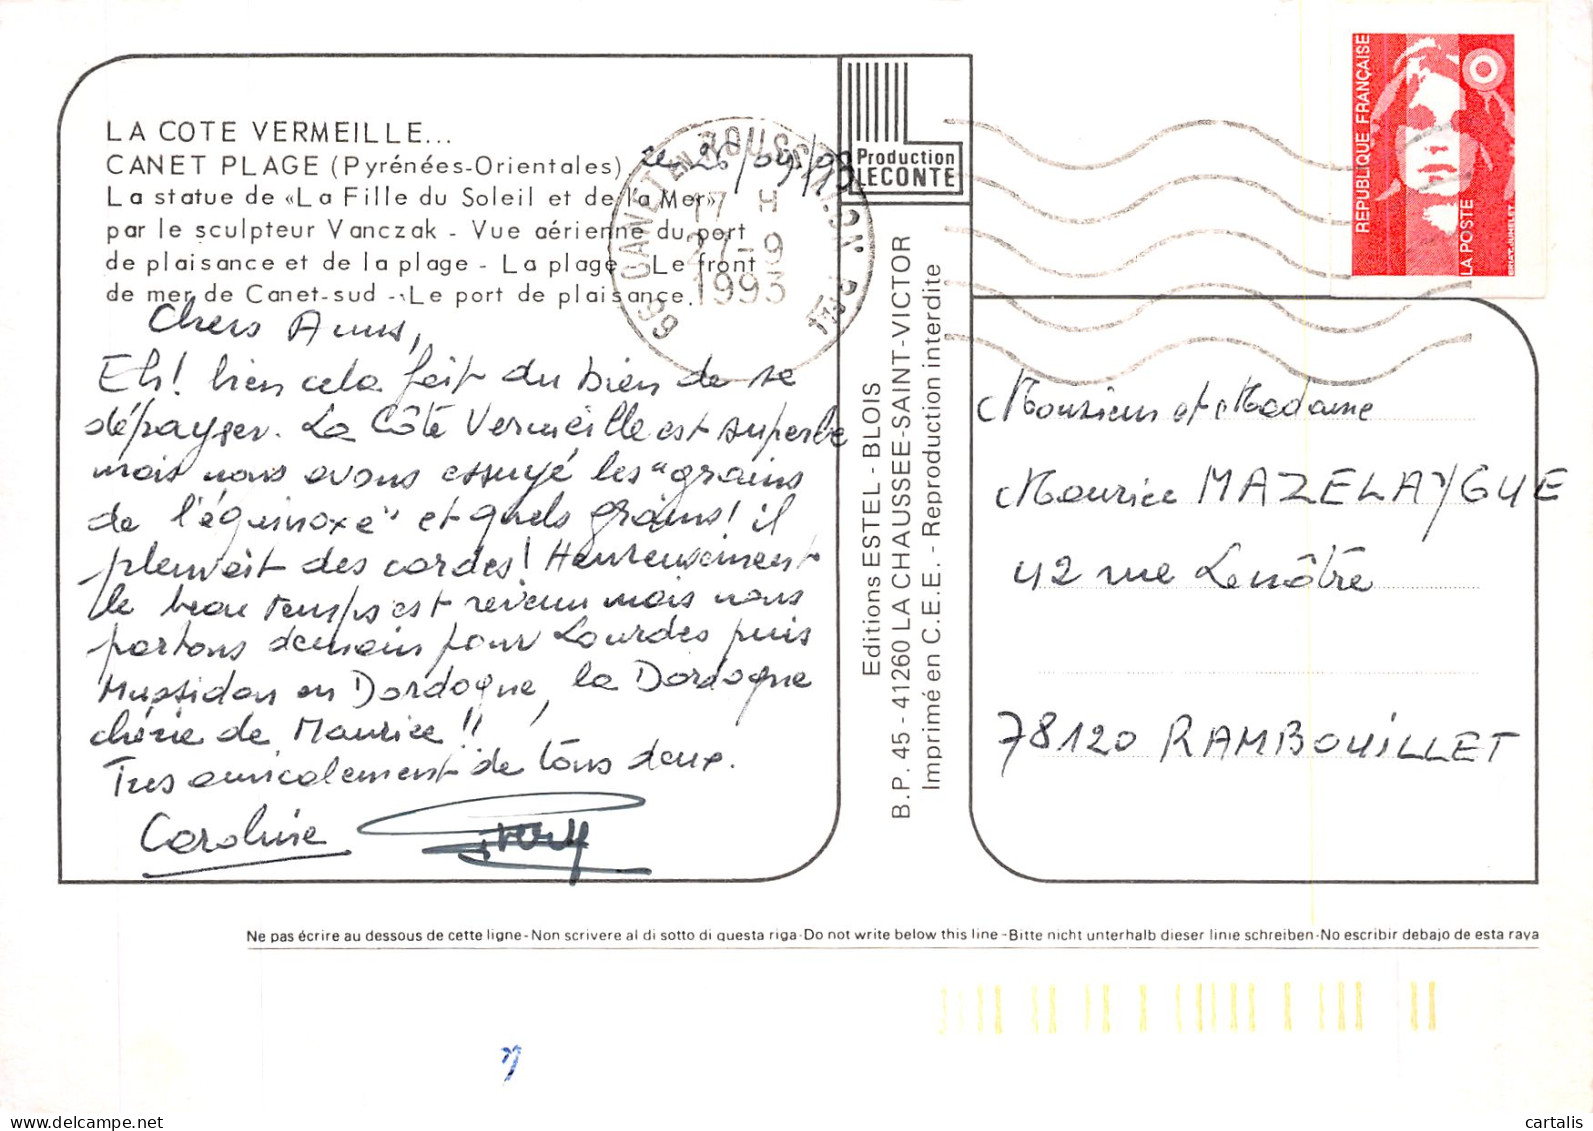 LA COTE VERMEILLE...
CANET PLAGE (Pyrénées-Orientales)
La statue de «La Fille du Soleil et de la Mer»
par le sculpteur Vanczak - Vue aérienne du port
de plaisance et de la plage - La plage - Le front
de mer de Canet-sud - Le port de plaisance.
Chers Amis,
Eh! bien cela fait du bien de se
dépayser. La Côte Vermeille est superbe
mais nous avons essuyé les "grains
de l'équinoxe" et quels grains! il
pleuvait des cordes! Heureusement
le beau temps est revenu mais nous
partons demain pour Lourdes puis
Mussidan en Dordogne, la Dordogne
chérie de Maurice!!
Tres amicalement de tous deux.
Caroline
66 CANET EN ROUSSILLON
17 H
27-9
1993
Production
LECONTE
Editions ESTEL - BLOIS
B.P. 45 - 41260 LA CHAUSSEE-SAINT-VICTOR
Imprimé en C.E.E. - Reproduction interdite
REPUBLIQUE FRANÇAISE
LA POSTE
BRIAT-JUMELET
Monsieur et Madame
Maurice MAZELAYGUE
42 rue Lenôtre
78120 RAMBOUILLET
Ne pas écrire au dessous de cette ligne-Non scrivere al di sotto di questa riga-Do not write below this line-Bitte nicht unterhalb dieser linie schreiben-No escribir debajo de esta raya
cartalis
delcampe.net